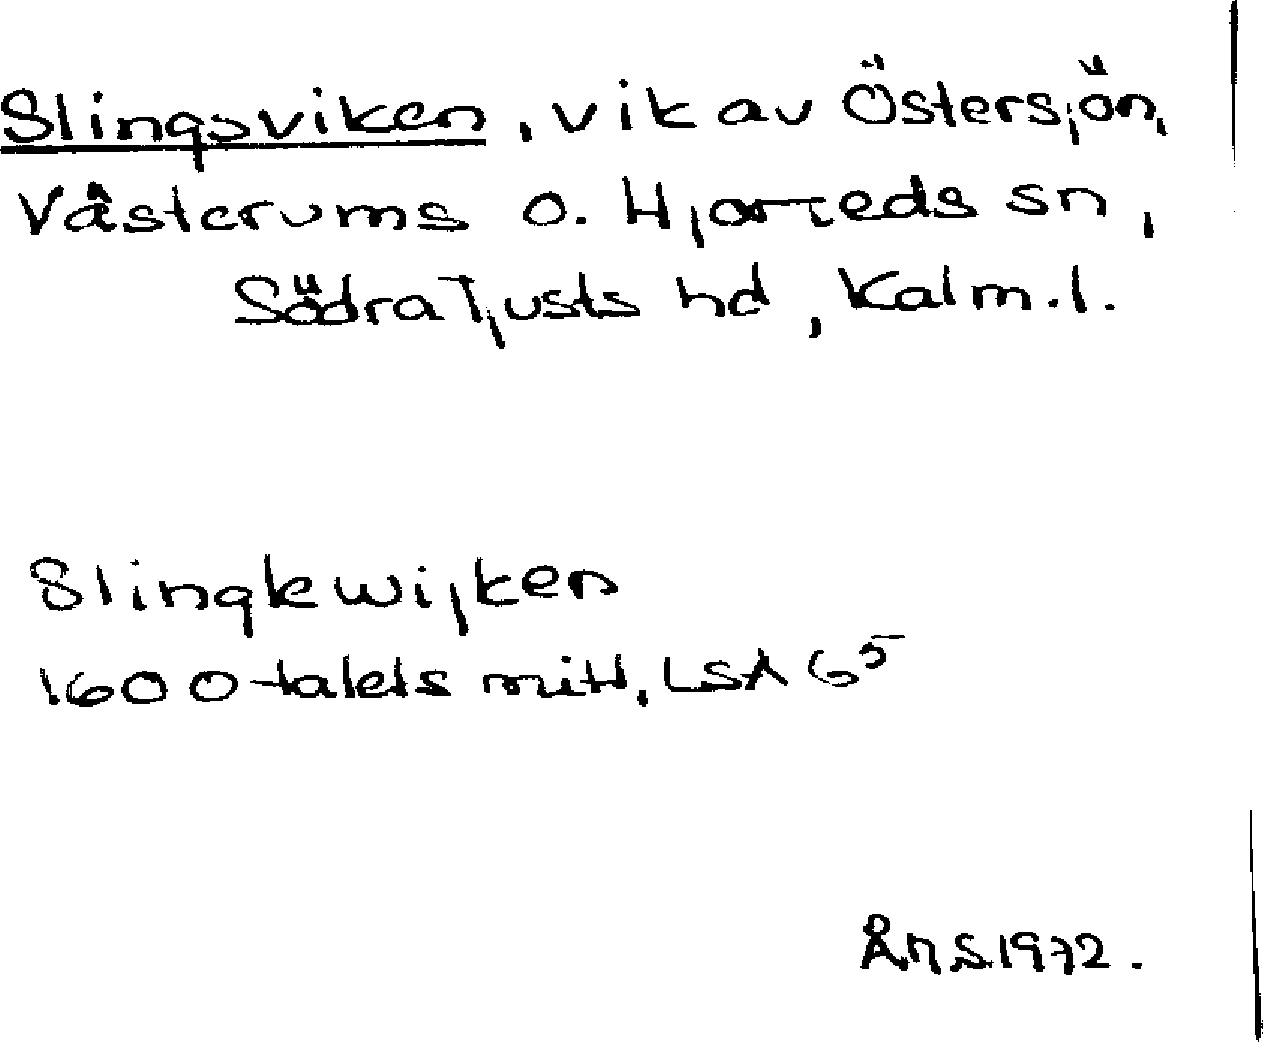 Slingsviken, vik av Östersjön,
Västerums o. Hjorteds sn,
Södra Tjusts hd, Kalm.l.
Slingkwijken
1600-talets mitt, LSA G5
ÅMS 1972.